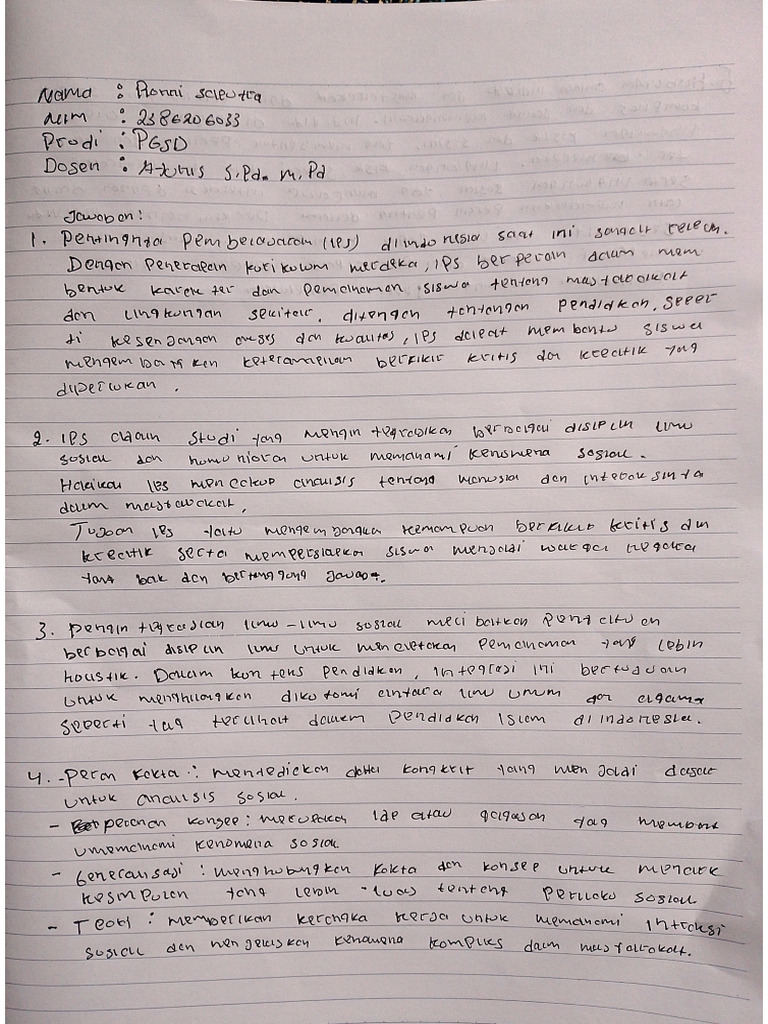 Nama : Ronni scleutra
Nim : 2386206033
Prodi : PGSD
Dosen : S.Pd. M.Pd
Jawaban :
1. Pentingnya Pembelajaran (IPS) di indonesia saat ini sangat relevan.
Dengan Penerapan kurikulum merdeka, IPS berperan dalam mem
bentuk karakter dan pemahaman siswa tentang masyarakat
dan lingkungan sekitar. ditengah tantangan pendidikan, seper
ti kesenjangan akses dan kualitas, IPS dapat membantu siswa
mengembangkan keterampilan berfikir kritis dan kreatif yang
diperlukan.
2. IPS adalah studi yang mengintegrasikan berbagai disiplin ilmu
sosial dan humaniora untuk memahami fenomena sosial.
Hakikat IPS mencakup analisis tentang manusia dan interaksinya
dalam masyarakat,
Tujuan IPS yaitu mengembangka kemampuan berfikir kritis dan
kreatif serta mempersiapkan siswa menjadi warga negara
yang baik dan bertanggung jawab.
3. Pengintegrasian ilmu-ilmu sosial melibatkan pengaitan
berbagai disiplin ilmu untuk menciptakan pemahaman yang lebih
holistik. Dalam konteks pendidikan, integrasi ini bertujuan
untuk menghilangkan dikotomi antara ilmu umum dan agama
seperti yang terlihat dalam pendidikan islam di indonesia.
4. - Peran Fakta : menyediakan data kongkrit yang menjadi dasar
untuk analisis sosial.
- peranan konsep : merupakan ide atau gagasan yang membant
u memahami fenomena sosial.
- Generalisasi : menghubungkan fakta dan konsep untuk menarik
kesimpulan yang lebih luas tentang perilaku sosial.
- Teori : memberikan kerangka kerja untuk memahami intraksi
sosial dan menjelaskan fenomena kompleks dalam masyarakat.